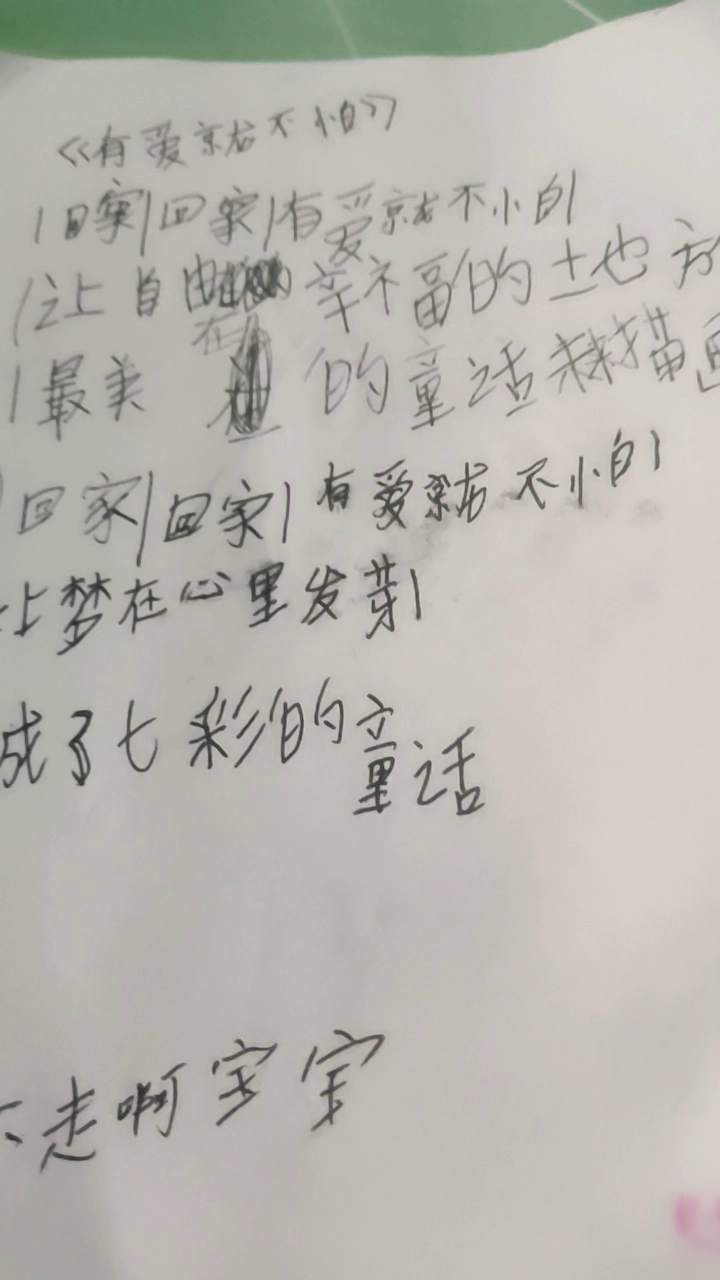 《有爱就不怕》
|回家|回家|有爱就不怕|
|让自由在幸福的地方
|最美的童话来描画
回家|回家|有爱就不怕|
让梦在心里发芽|
成了七彩的童话
走啊宝宝